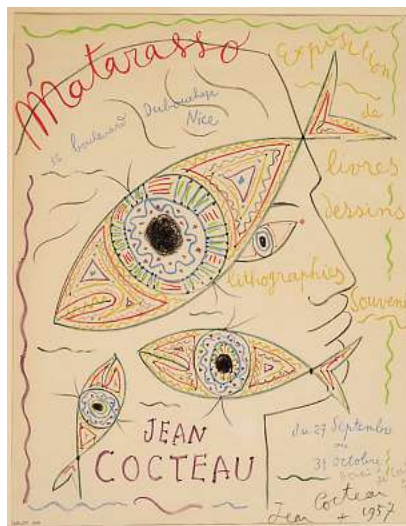 Matarasso
Exposition
de
36 boulevard Dubouchage
Nice
livres
dessins
lithographies
Souvenirs
JEAN
COCTEAU
du 27 Septembre
au
31 Octobre
Jean Cocteau
1957